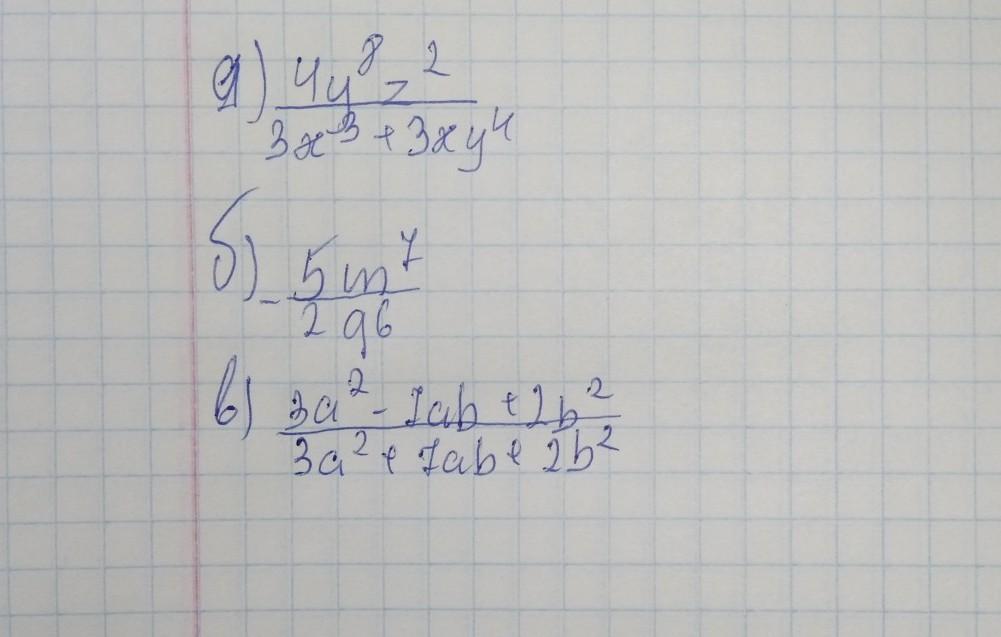 а) 4y⁸z² / 3x³ + 3xy⁴
б) - 5m⁷ / 2g6
в) 3a² - 7ab + 2b² / 3a² + 7ab + 2b²